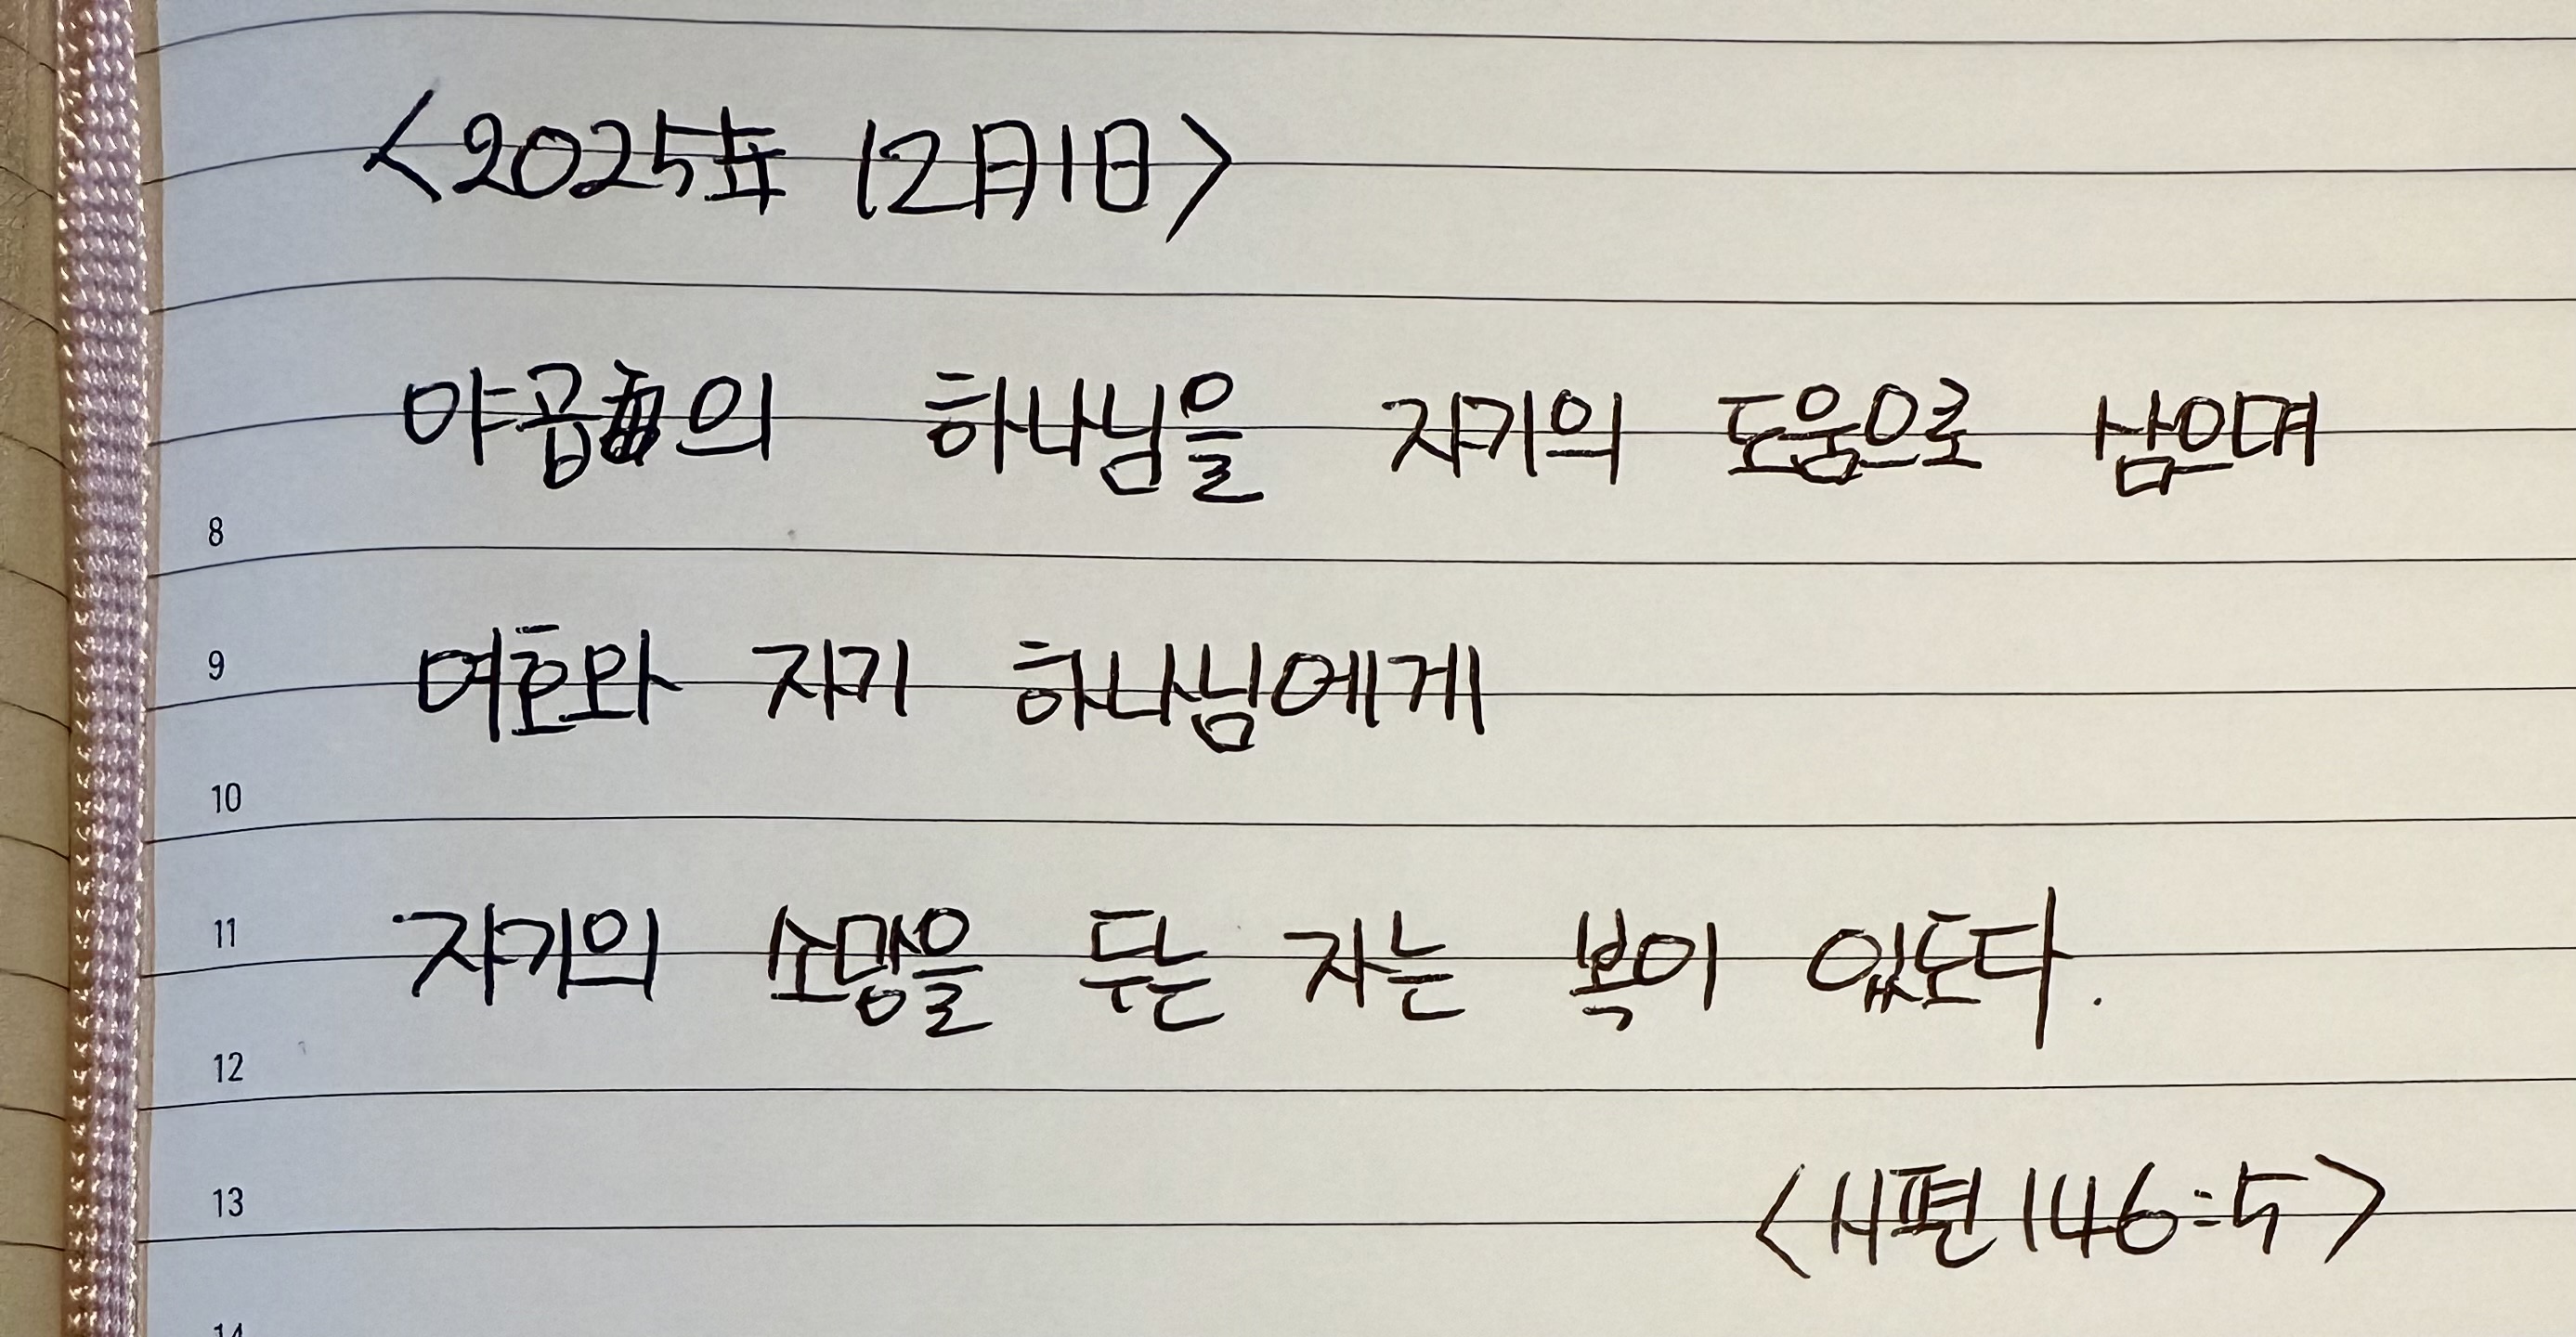 <2025年 12月1日>
야곱의 하나님을 자기의 도움으로 삼으며
8
여호와 자기 하나님에게
9
10
자기의 소망을 두는 자는 복이 있도다.
11
12
<시편 146:5>
13
14